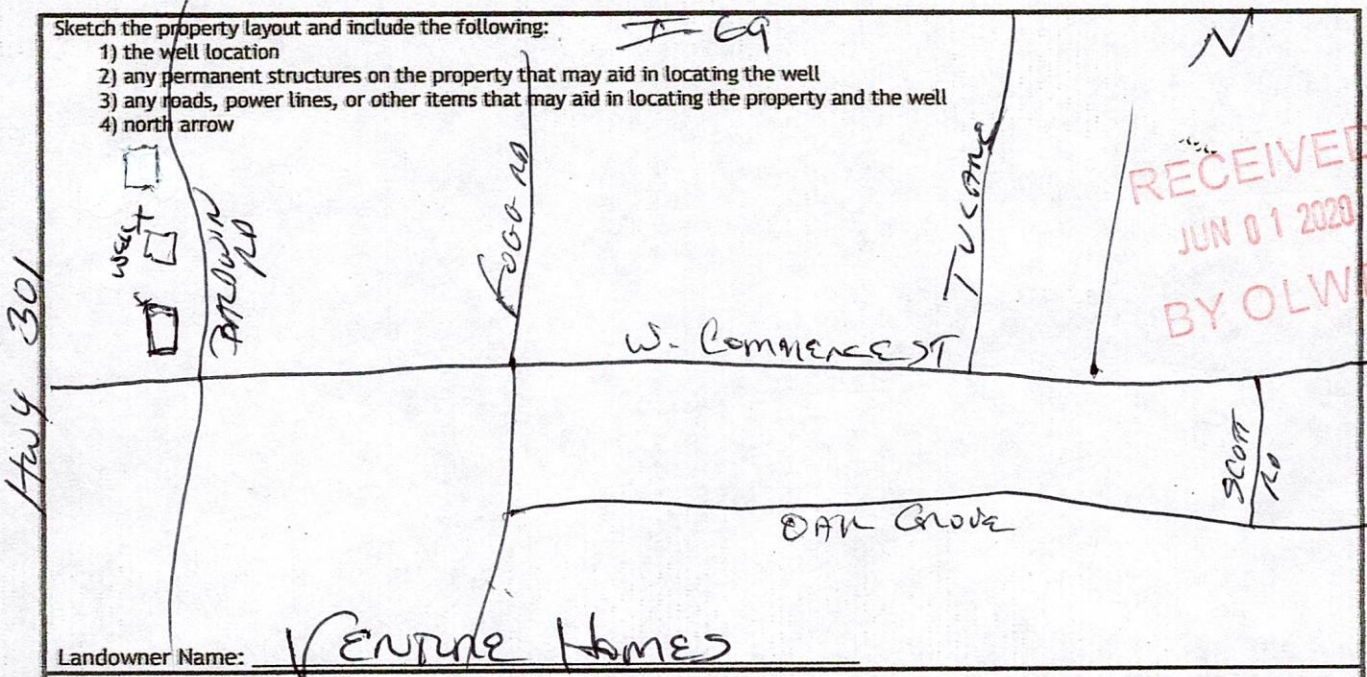 Sketch the property layout and include the following:
1) the well location
2) any permanent structures on the property that may aid in locating the well
3) any roads, power lines, or other items that may aid in locating the property and the well
4) north arrow
I-69
N
RECEIVED
JUN 01 2020
BY OLW
WELL
BALDWIN
RD
FOGG RD
TULANE
Hwy 301
W. COMMERCE ST
SCOTT
RD
OAK GROVE
Landowner Name: VENTURE HOMES